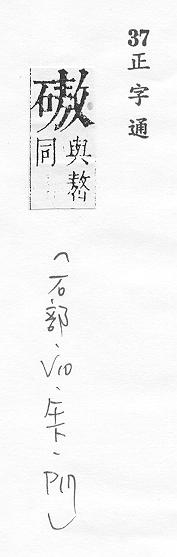 37
正字通
磝
與
同
(石部.V10.午下.P17)